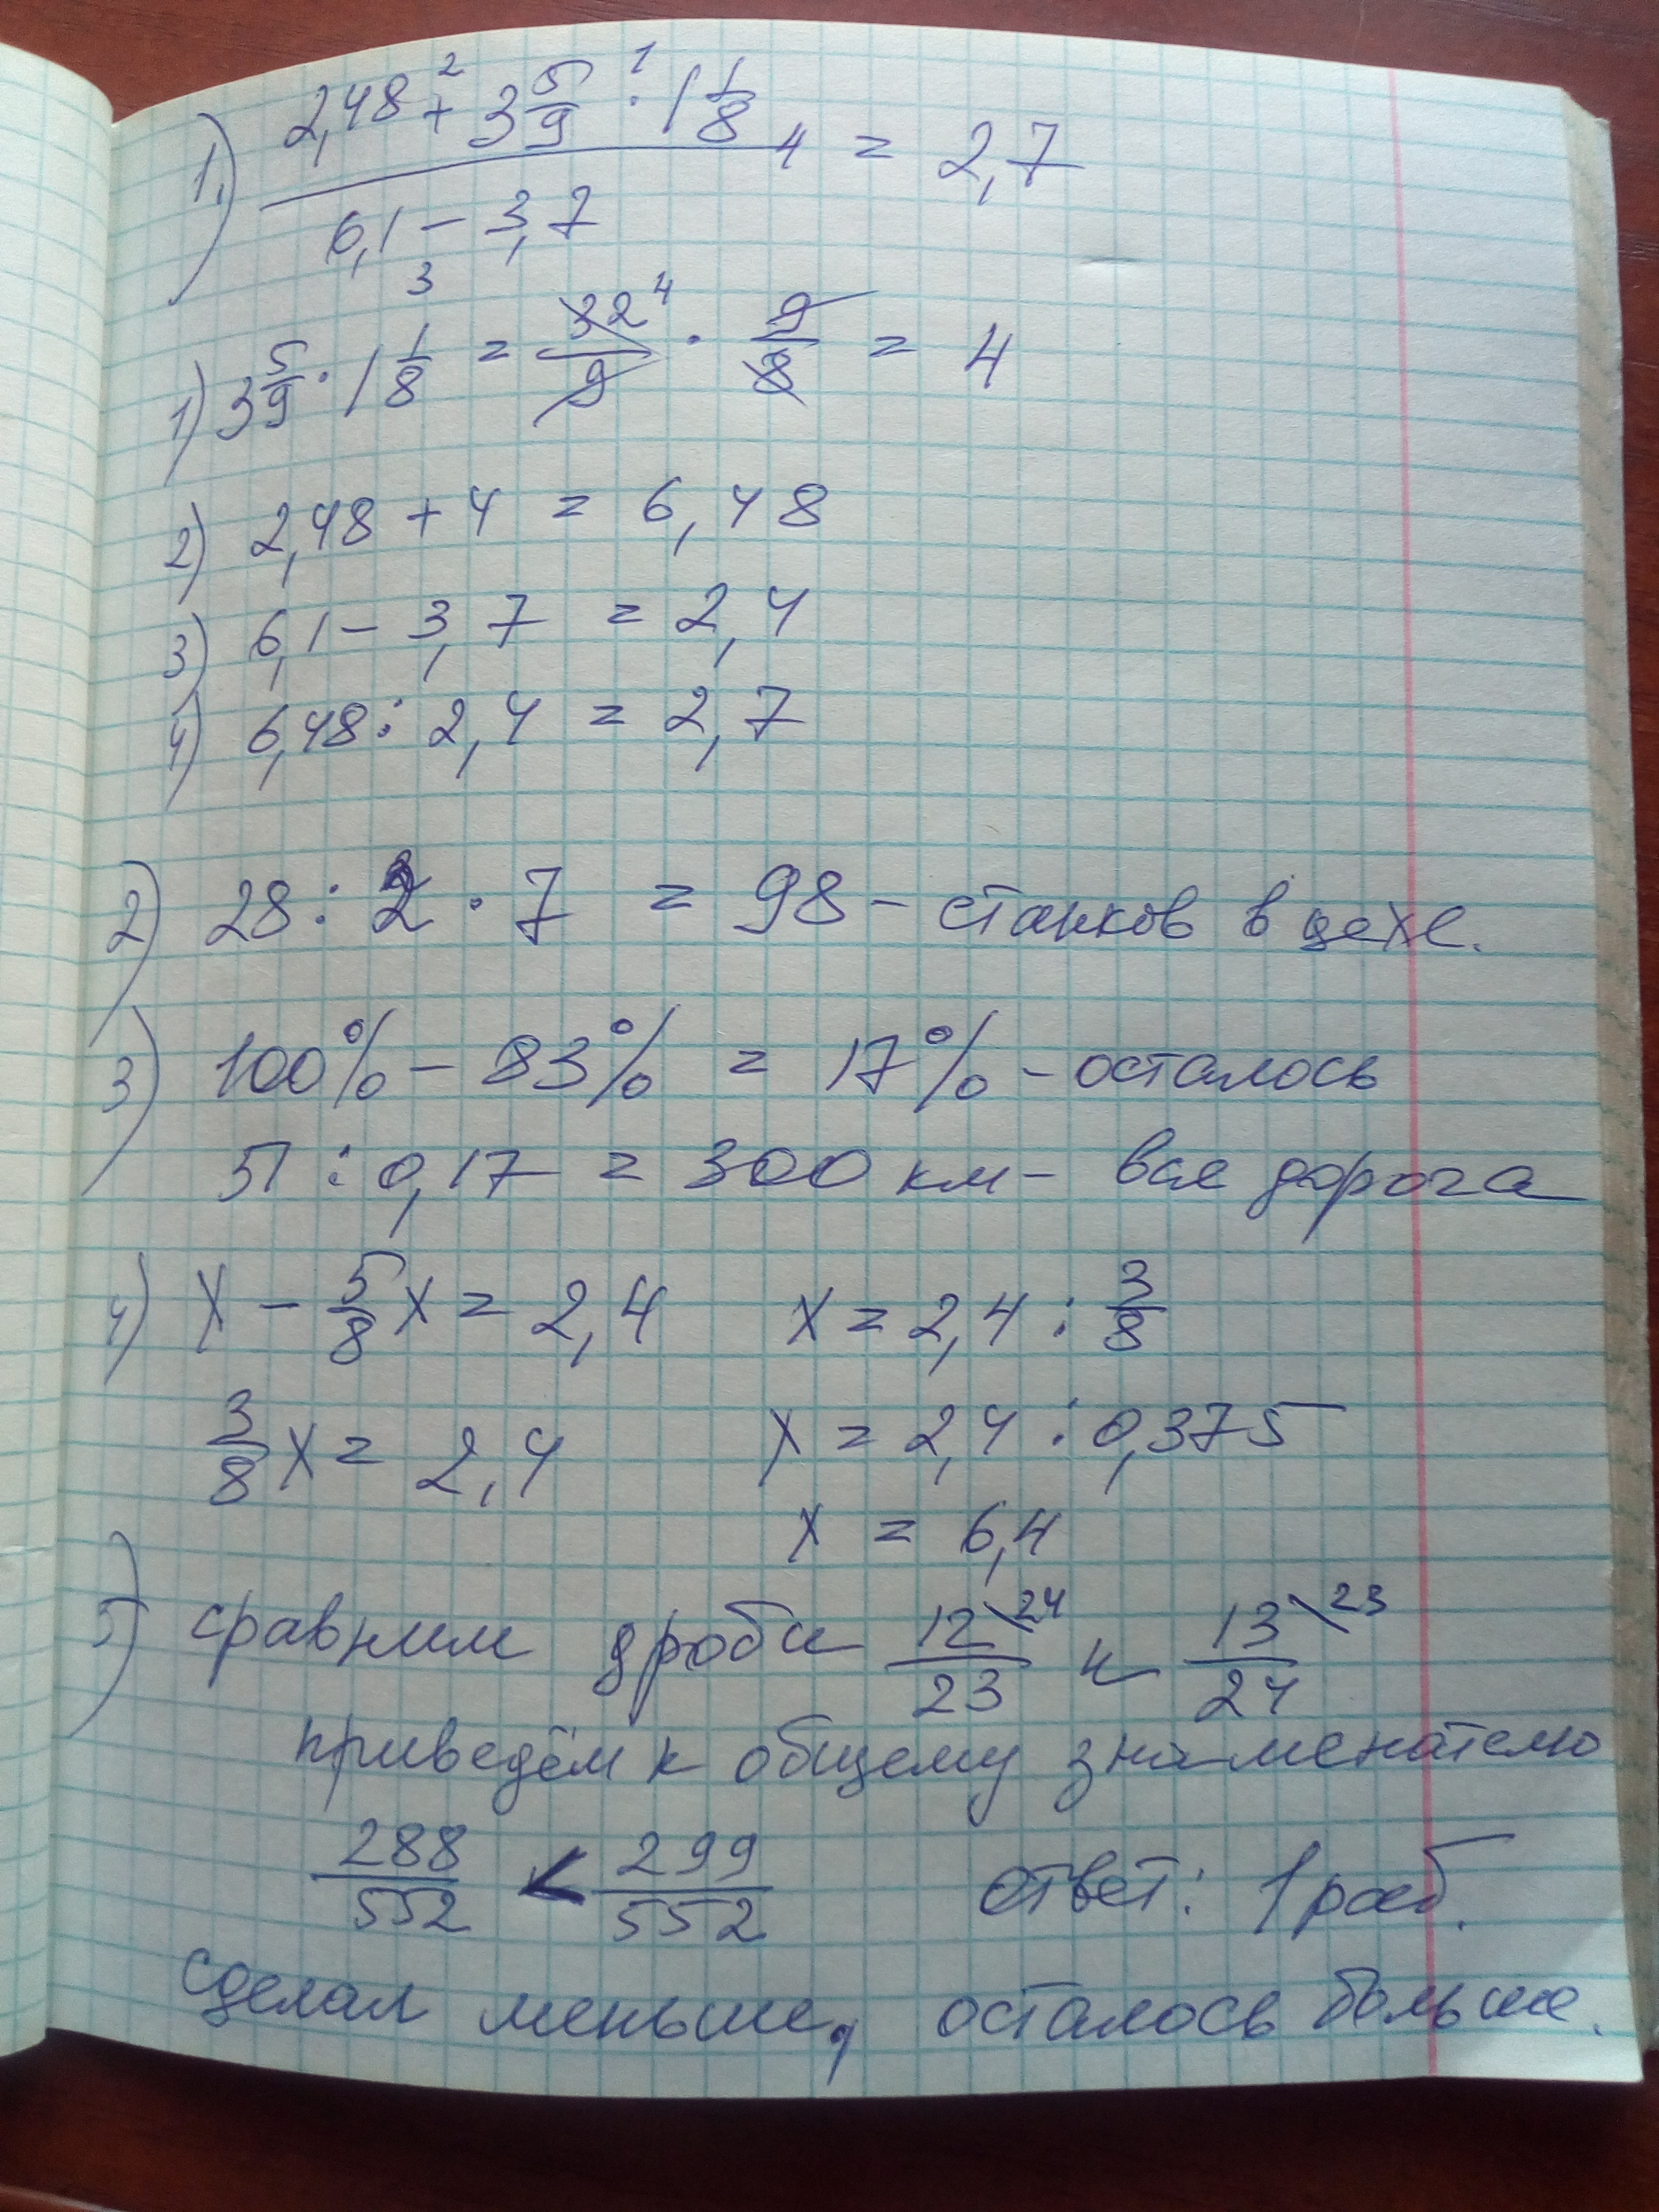 1.) (2,48 + 3 5/9 · 1 1/8) / (6,1 - 3,7) = 2,7
2 1 4 3
1) 3 5/9 · 1 1/8 = 32/9 · 9/8 = 4
4
2) 2,48 + 4 = 6,48
3) 6,1 - 3,7 = 2,4
4) 6,48 : 2,4 = 2,7
2) 28 : 2 · 7 = 98 - станков в цехе.
3) 100% - 83% = 17% - осталось
51 : 0,17 = 300 км - вся дорога
4) х - 5/8 х = 2,4 х = 2,4 : 3/8
3/8 х = 2,4 х = 2,4 : 0,375
х = 6,4
5) сравним дроби 12\24/23 и 13\23/24
приведём к общему знаменателю
288/552 < 299/552 ответ: 1 раб.
сделал меньше, осталось больше.